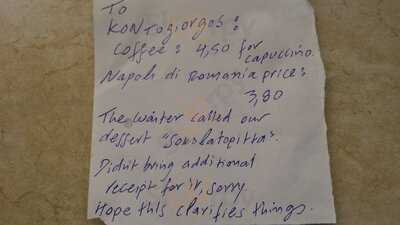 To
KONTogiorgos:
Coffee: 4,50 for
capuccino.
Napoli di Romania price:
3,80
The waiter called our
dessert "Sokolatopitta".
Didn't bring additional
receipt for it, sorry.
Hope this clarifies things.